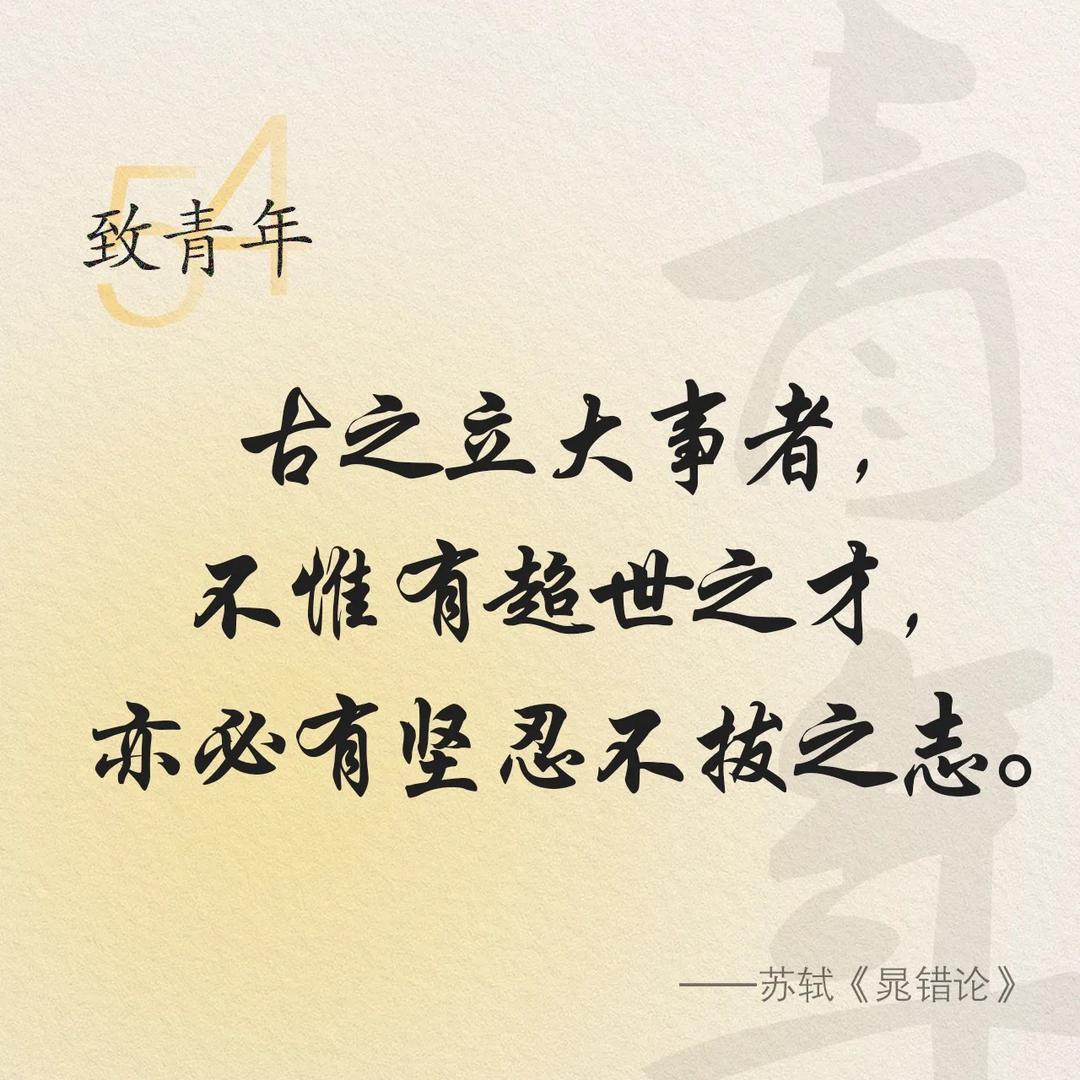 54
致青年
古之立大事者，
不惟有超世之才，
亦必有坚忍不拔之志。
——苏轼《晁错论》
青年